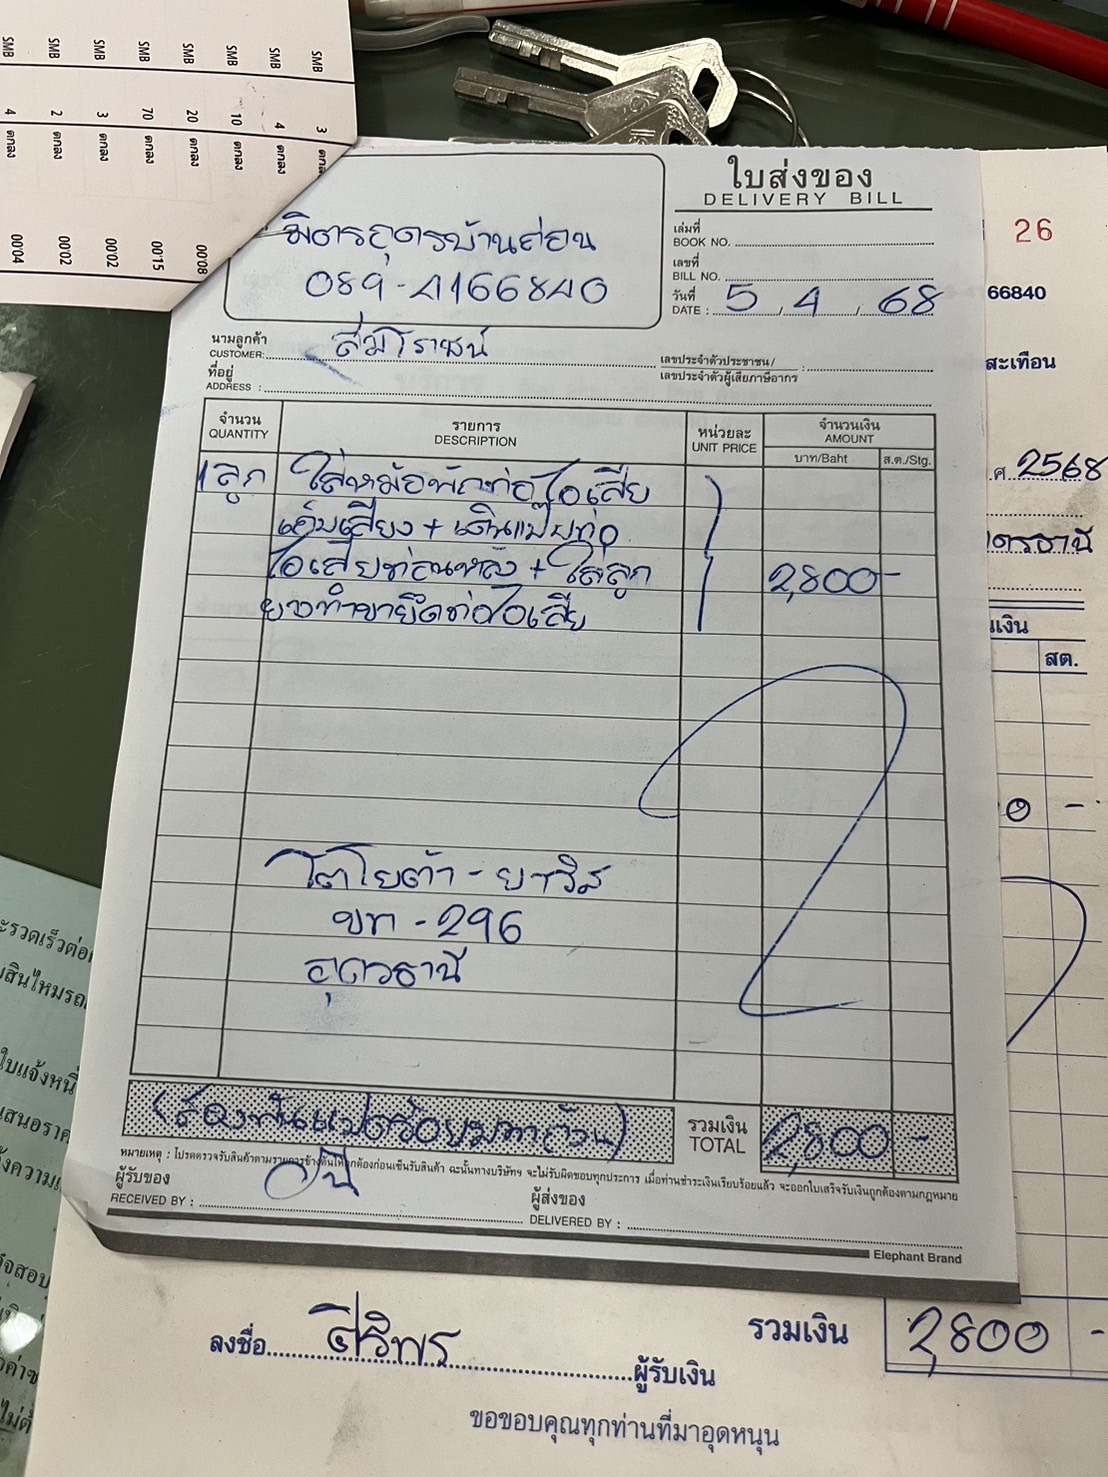 SMB 4 ตกลง 00'04
SMB 2 ตกลง 00'02
SMB 3 ตกลง 00'02
SMB 70 ตกลง 00'15
SMB 20 ตกลง 00'08
SMB 10 ตกลง
SMB 4 ตกลง
SMB 3 ตกลง
มิตรอุดรบ้านถ่อน
089-4166840
ใบส่งของ
DELIVERY BILL
เล่มที่
BOOK NO.
เลขที่
BILL NO.
วันที่
DATE : 5 / 4 / 68
นามลูกค้า
CUSTOMER:
ที่อยู่
ADDRESS :
เลขประจำตัวประชาชน/
เลขประจำตัวผู้เสียภาษีอากร :
จำนวน
QUANTITY
รายการ
DESCRIPTION
หน่วยละ
UNIT PRICE
จำนวนเงิน
AMOUNT
บาท/Baht ส.ต./Stg.
1 ลูก ใส่หม้อพักท่อไอเสีย
เก็บเสียง + เดินแป๊บท่อ
ไอเสียท่อนหลัง + ใส่ลูก 2,800-
ยางทำขายึดท่อไอเสีย
โตโยต้า - ยาริส
ขท - 296
อุดรธานี
(สองพันแปดร้อยบาทถ้วน) รวมเงิน
TOTAL 2,800 -
หมายเหตุ : โปรดตรวจรับสินค้าตามรายการข้างต้นให้ถูกต้องก่อนเซ็นรับสินค้า ฉะนั้นทางบริษัทฯ จะไม่รับผิดชอบทุกประการ เมื่อท่านชำระเงินเรียบร้อยแล้ว จะออกใบเสร็จรับเงินถูกต้องตามกฎหมาย
ผู้รับของ
RECEIVED BY :
ผู้ส่งของ
DELIVERED BY :
Elephant Brand
26
66840
สะเทือน
ศ. 2568
ดรธานี
เงิน
สต.
0 -
ลงชื่อ ศิริพร ผู้รับเงิน
รวมเงิน 2,800 -
ขอขอบคุณทุกท่านที่มาอุดหนุน
ะรวดเร็วต่อ
ใบแจ้งหนี้
เสนอราค